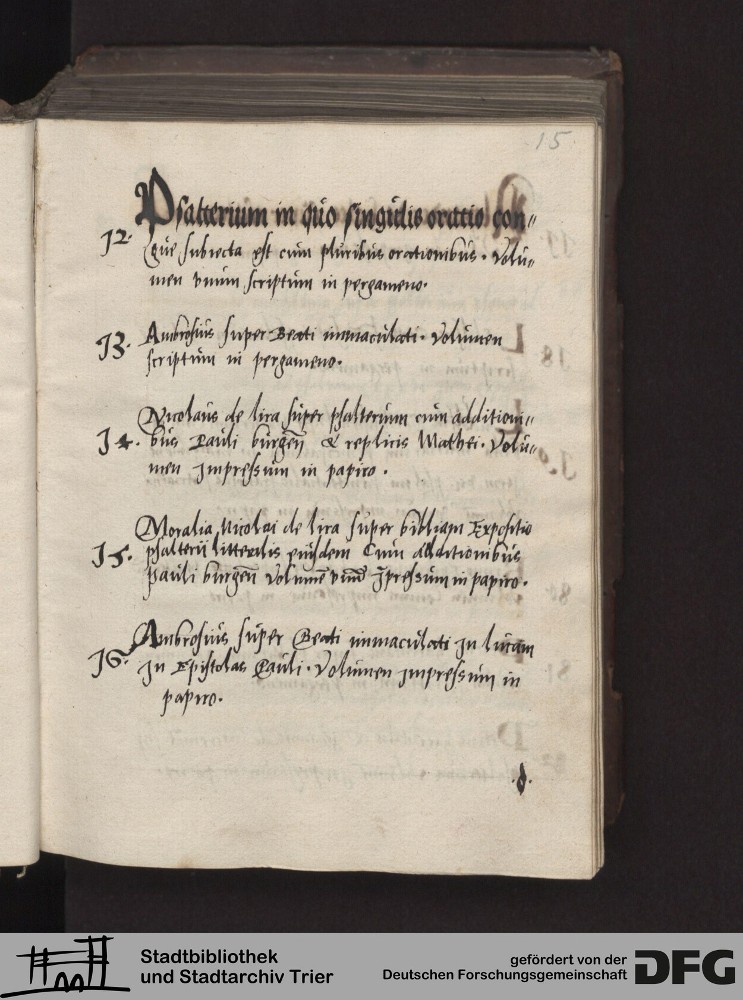 15
Psalterium in quo singulis oratio con„
12. grue subiecta est cum pluribus orationibus. Volu„
men vnum scriptum in pergameno.
13. Ambrosius super Beati immaculati. Volumen
scriptum in pergameno.
Nicolaus de lira super psalterium cum addicioni„
14. bus Pauli burgeñ & replicis Mathei. Volu„
men Jmpressum in papiro.
Moralia Nicolai de lira super bibliam Expositio
15. psalterii litteralis eiusdem Cum additionibus
Pauli burgeñ Volumē vnū Jpressum in papiro.
Ambrosius super Beati immaculati Jn lucam
16. Jn Epistolas Pauli. Volumen Jmpressum in
papiro.
.d.
Stadtbibliothek
und Stadtarchiv Trier
gefördert von der
Deutschen Forschungsgemeinschaft
DFG